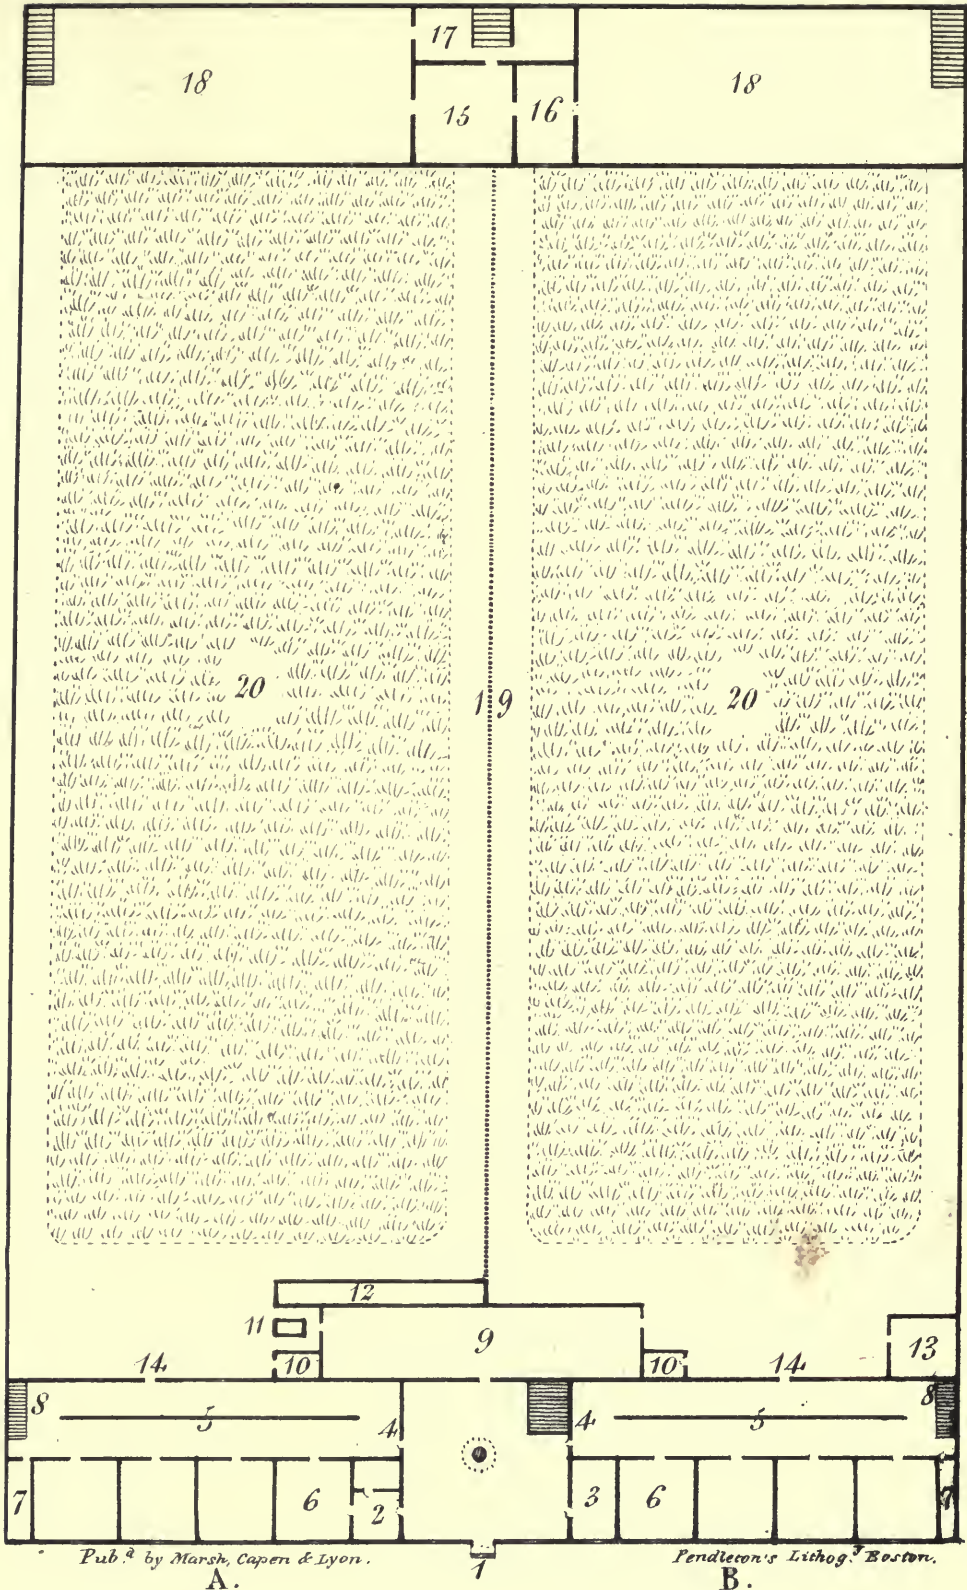 17
18
18
15
16
20
19
20
12
11
9
13
14
10
10
14
8
8
5
4
4
5
7
6
2
3
6
7
Pub.d by Marsh, Capen & Lyon.
1
Pendleton's Lithog.y Boston.
A.
B.